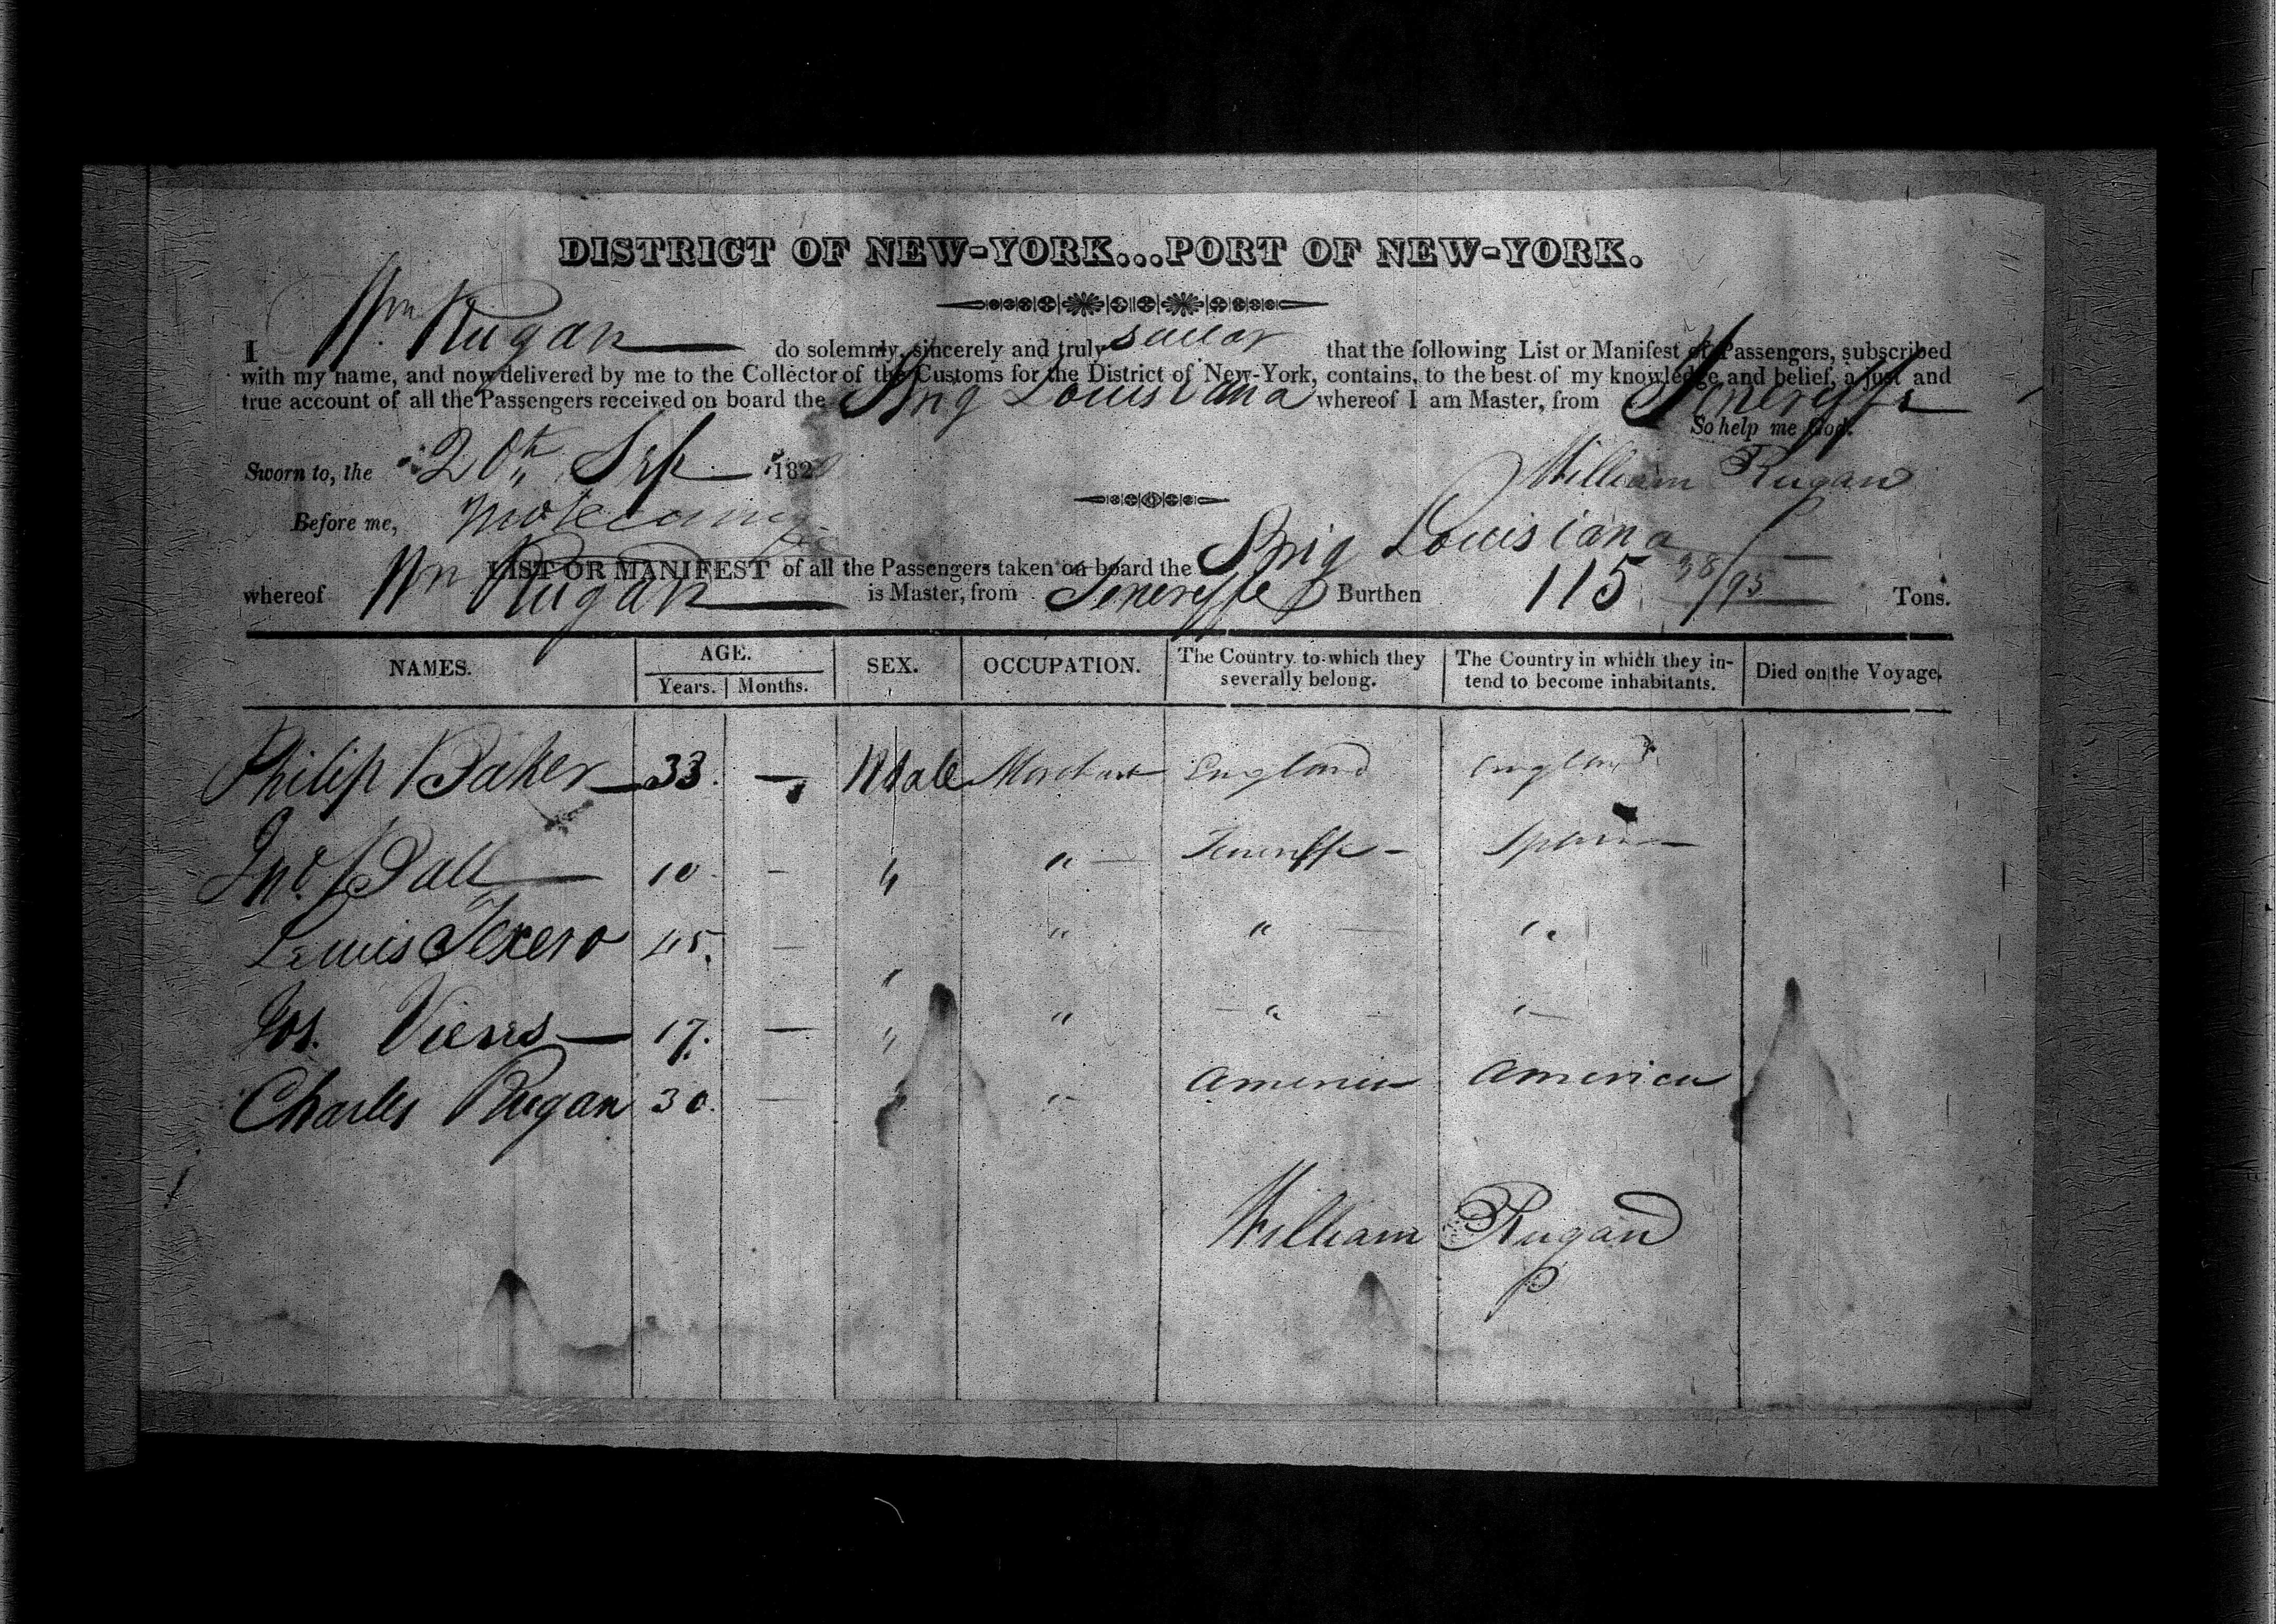 DISTRICT OF NEW-YORK...PORT OF NEW-YORK.
I Wm. Rugan do solemnly, sincerely and truly swear that the following List or Manifest of Passengers, subscribed
with my name, and now delivered by me to the Collector of the Customs for the District of New-York, contains, to the best of my knowledge and belief, a just and
true account of all the Passengers received on board the Brig Louisiana whereof I am Master, from Teneriffe
So help me God.
Sworn to, the 20th Sep 182 William Rugan
Before me,
LIST OR MANIFEST of all the Passengers taken on board the Brig Louisiana
whereof Wm Rugan is Master, from Teneriffe Burthen 115 38/95 Tons.
NAMES. AGE. SEX. OCCUPATION. The Country to which they severally belong. The Country in which they intend to become inhabitants. Died on the Voyage.
Years. Months.
Philip Baker 33. — Male Merchant England England
Jno. Ball 10 — " " Teneriffe Spain
Lewis Texero 45. — " " " "
Jos. 17. — " " " "
Charles Rugan 30. — " " America America
William Rugan